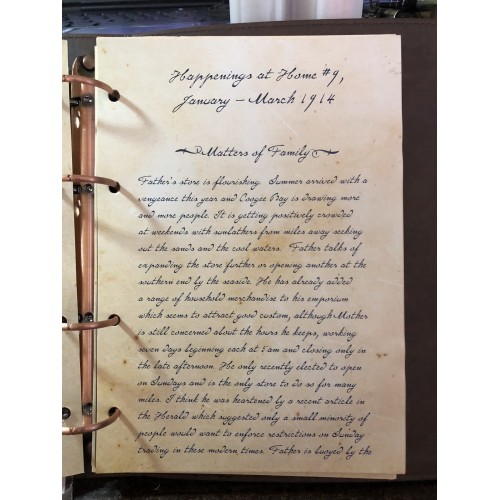 Happenings at Home #9,
January – March 1914
Matters of Family
Father's store is flourishing. Summer arrived with a
vengeance this year and Coogee Bay is drawing more
and more people. It is getting positively crowded
at weekends with sunbathers from miles away seeking
out the sands and the cool waters. Father talks of
expanding the store further or opening another at the
southern end by the seaside. He has already added
a range of household merchandise to his emporium
which seems to attract good custom, although Mother
is still concerned about the hours he keeps, working
seven days beginning each at 5am and closing only in
the late afternoon. He only recently elected to open
on Sundays and is the only store to do so for many
miles. I think he was heartened by a recent article in
the Herald which suggested only a small minority of
people would want to enforce restrictions on Sunday
trading in these modern times. Father is buoyed by the